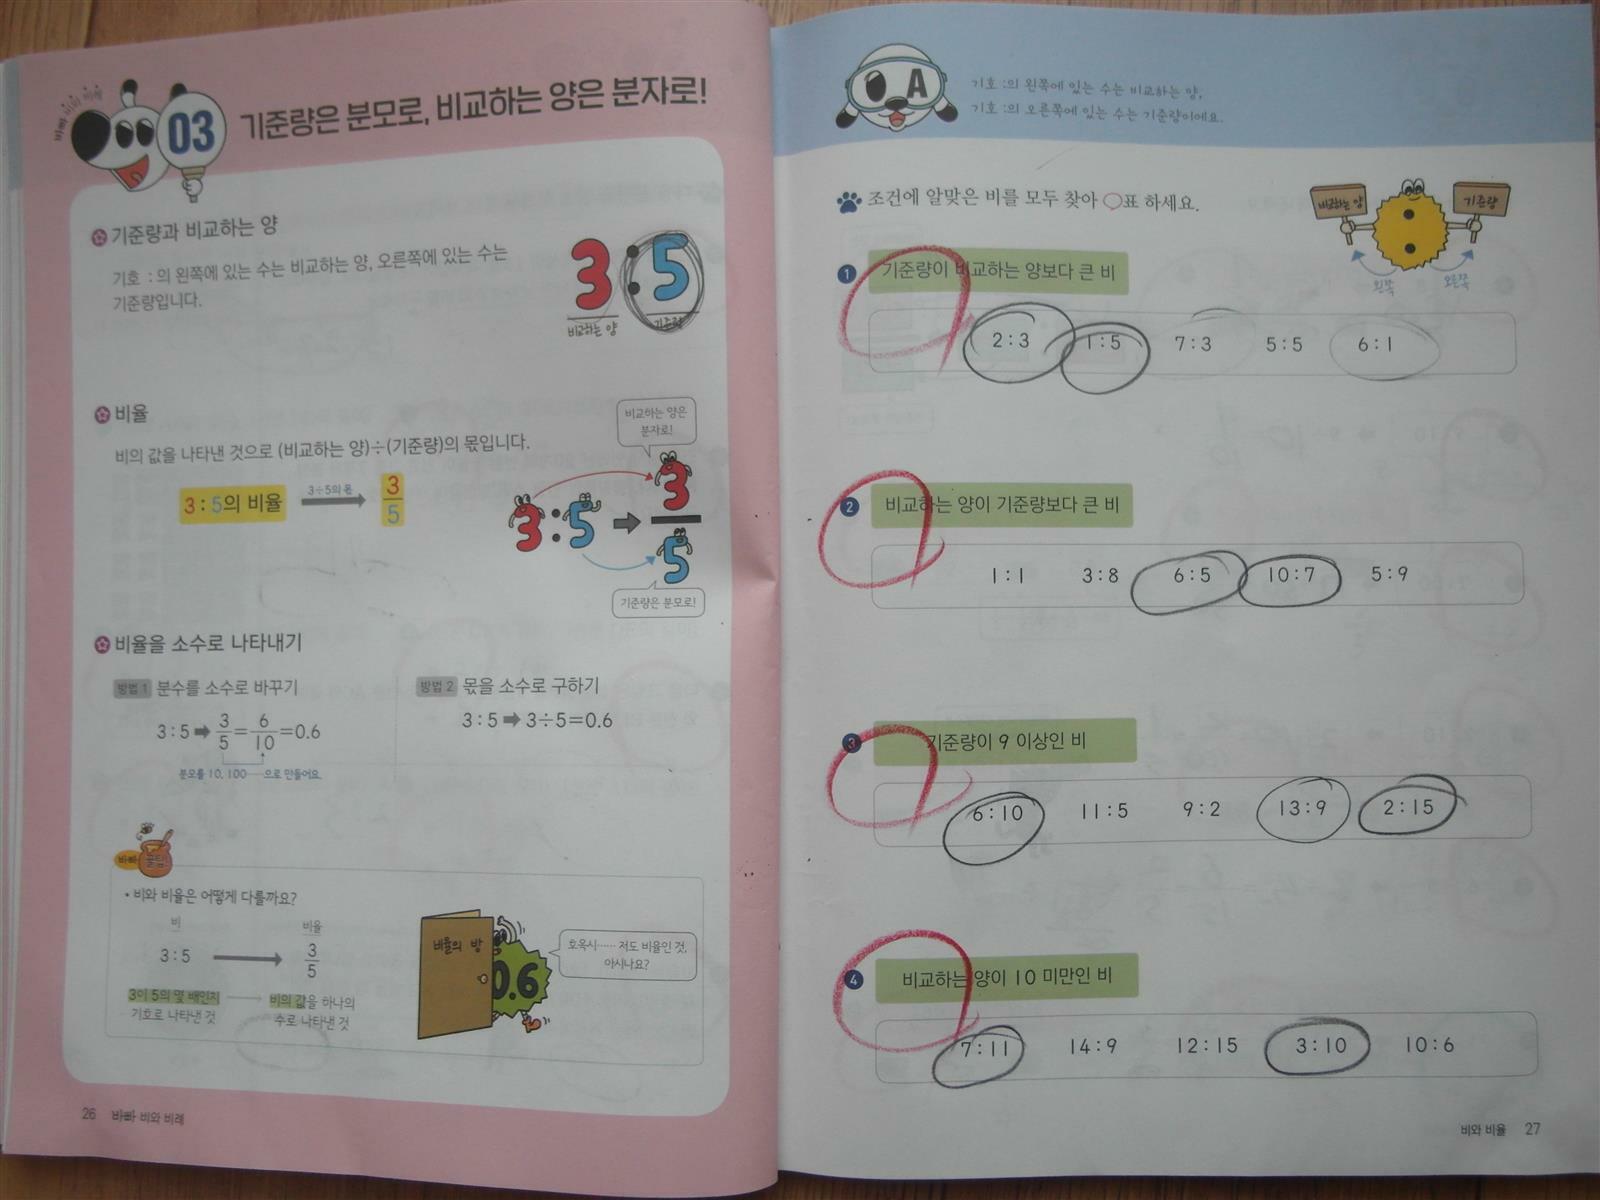 바빠 비와 비례
03 기준량은 분모로, 비교하는 양은 분자로!
기준량과 비교하는 양
기호 : 의 왼쪽에 있는 수는 비교하는 양, 오른쪽에 있는 수는
기준량입니다.
3 : 5
비교하는 양 기준량
비율
비의 값을 나타낸 것으로 (비교하는 양)÷(기준량)의 몫입니다.
비교하는 양은
분자로!
3 : 5의 비율 3÷5의 몫 3/5
3 : 5 ➡ 3/5
기준량은 분모로!
비율을 소수로 나타내기
방법 1 분수를 소수로 바꾸기
3 : 5 ➡ 3/5 = 6/10 = 0.6
분모를 10, 100……으로 만들어요.
방법 2 몫을 소수로 구하기
3 : 5 ➡ 3÷5=0.6
바빠 꿀팁!
• 비와 비율은 어떻게 다를까요?
비 비율
3 : 5 → 3/5
3이 5의 몇 배인지 → 비의 값을 하나의
기호로 나타낸 것 수로 나타낸 것
비율의 방
0.6
호옥시…… 저도 비율인 것,
아시나요?
26 바빠 비와 비례
A
기호 :의 왼쪽에 있는 수는 비교하는 양,
기호 :의 오른쪽에 있는 수는 기준량이에요.
조건에 알맞은 비를 모두 찾아 ○표 하세요.
비교하는 양 기준량
왼쪽 오른쪽
1 기준량이 비교하는 양보다 큰 비
2 : 3 1 : 5 7 : 3 5 : 5 6 : 1
2 비교하는 양이 기준량보다 큰 비
1 : 1 3 : 8 6 : 5 10 : 7 5 : 9
3 기준량이 9 이상인 비
6 : 10 11 : 5 9 : 2 13 : 9 2 : 15
4 비교하는 양이 10 미만인 비
7 : 11 14 : 9 12 : 15 3 : 10 10 : 6
비와 비율 27